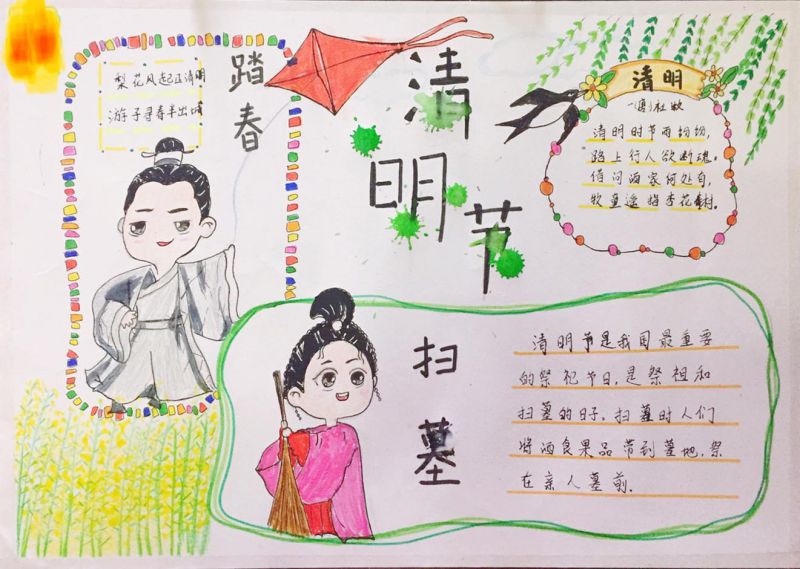 梨花风起正清明
游子寻春半出城
踏春
清明节
清明
(唐)杜牧
清明时节雨纷纷,
路上行人欲断魂。
借问酒家何处有,
牧童遥指杏花村。
扫墓
清明节是我国最重要
的祭祀节日,是祭祖和
扫墓的日子。扫墓时人们
将酒食果品带到墓地,祭
在亲人墓前.